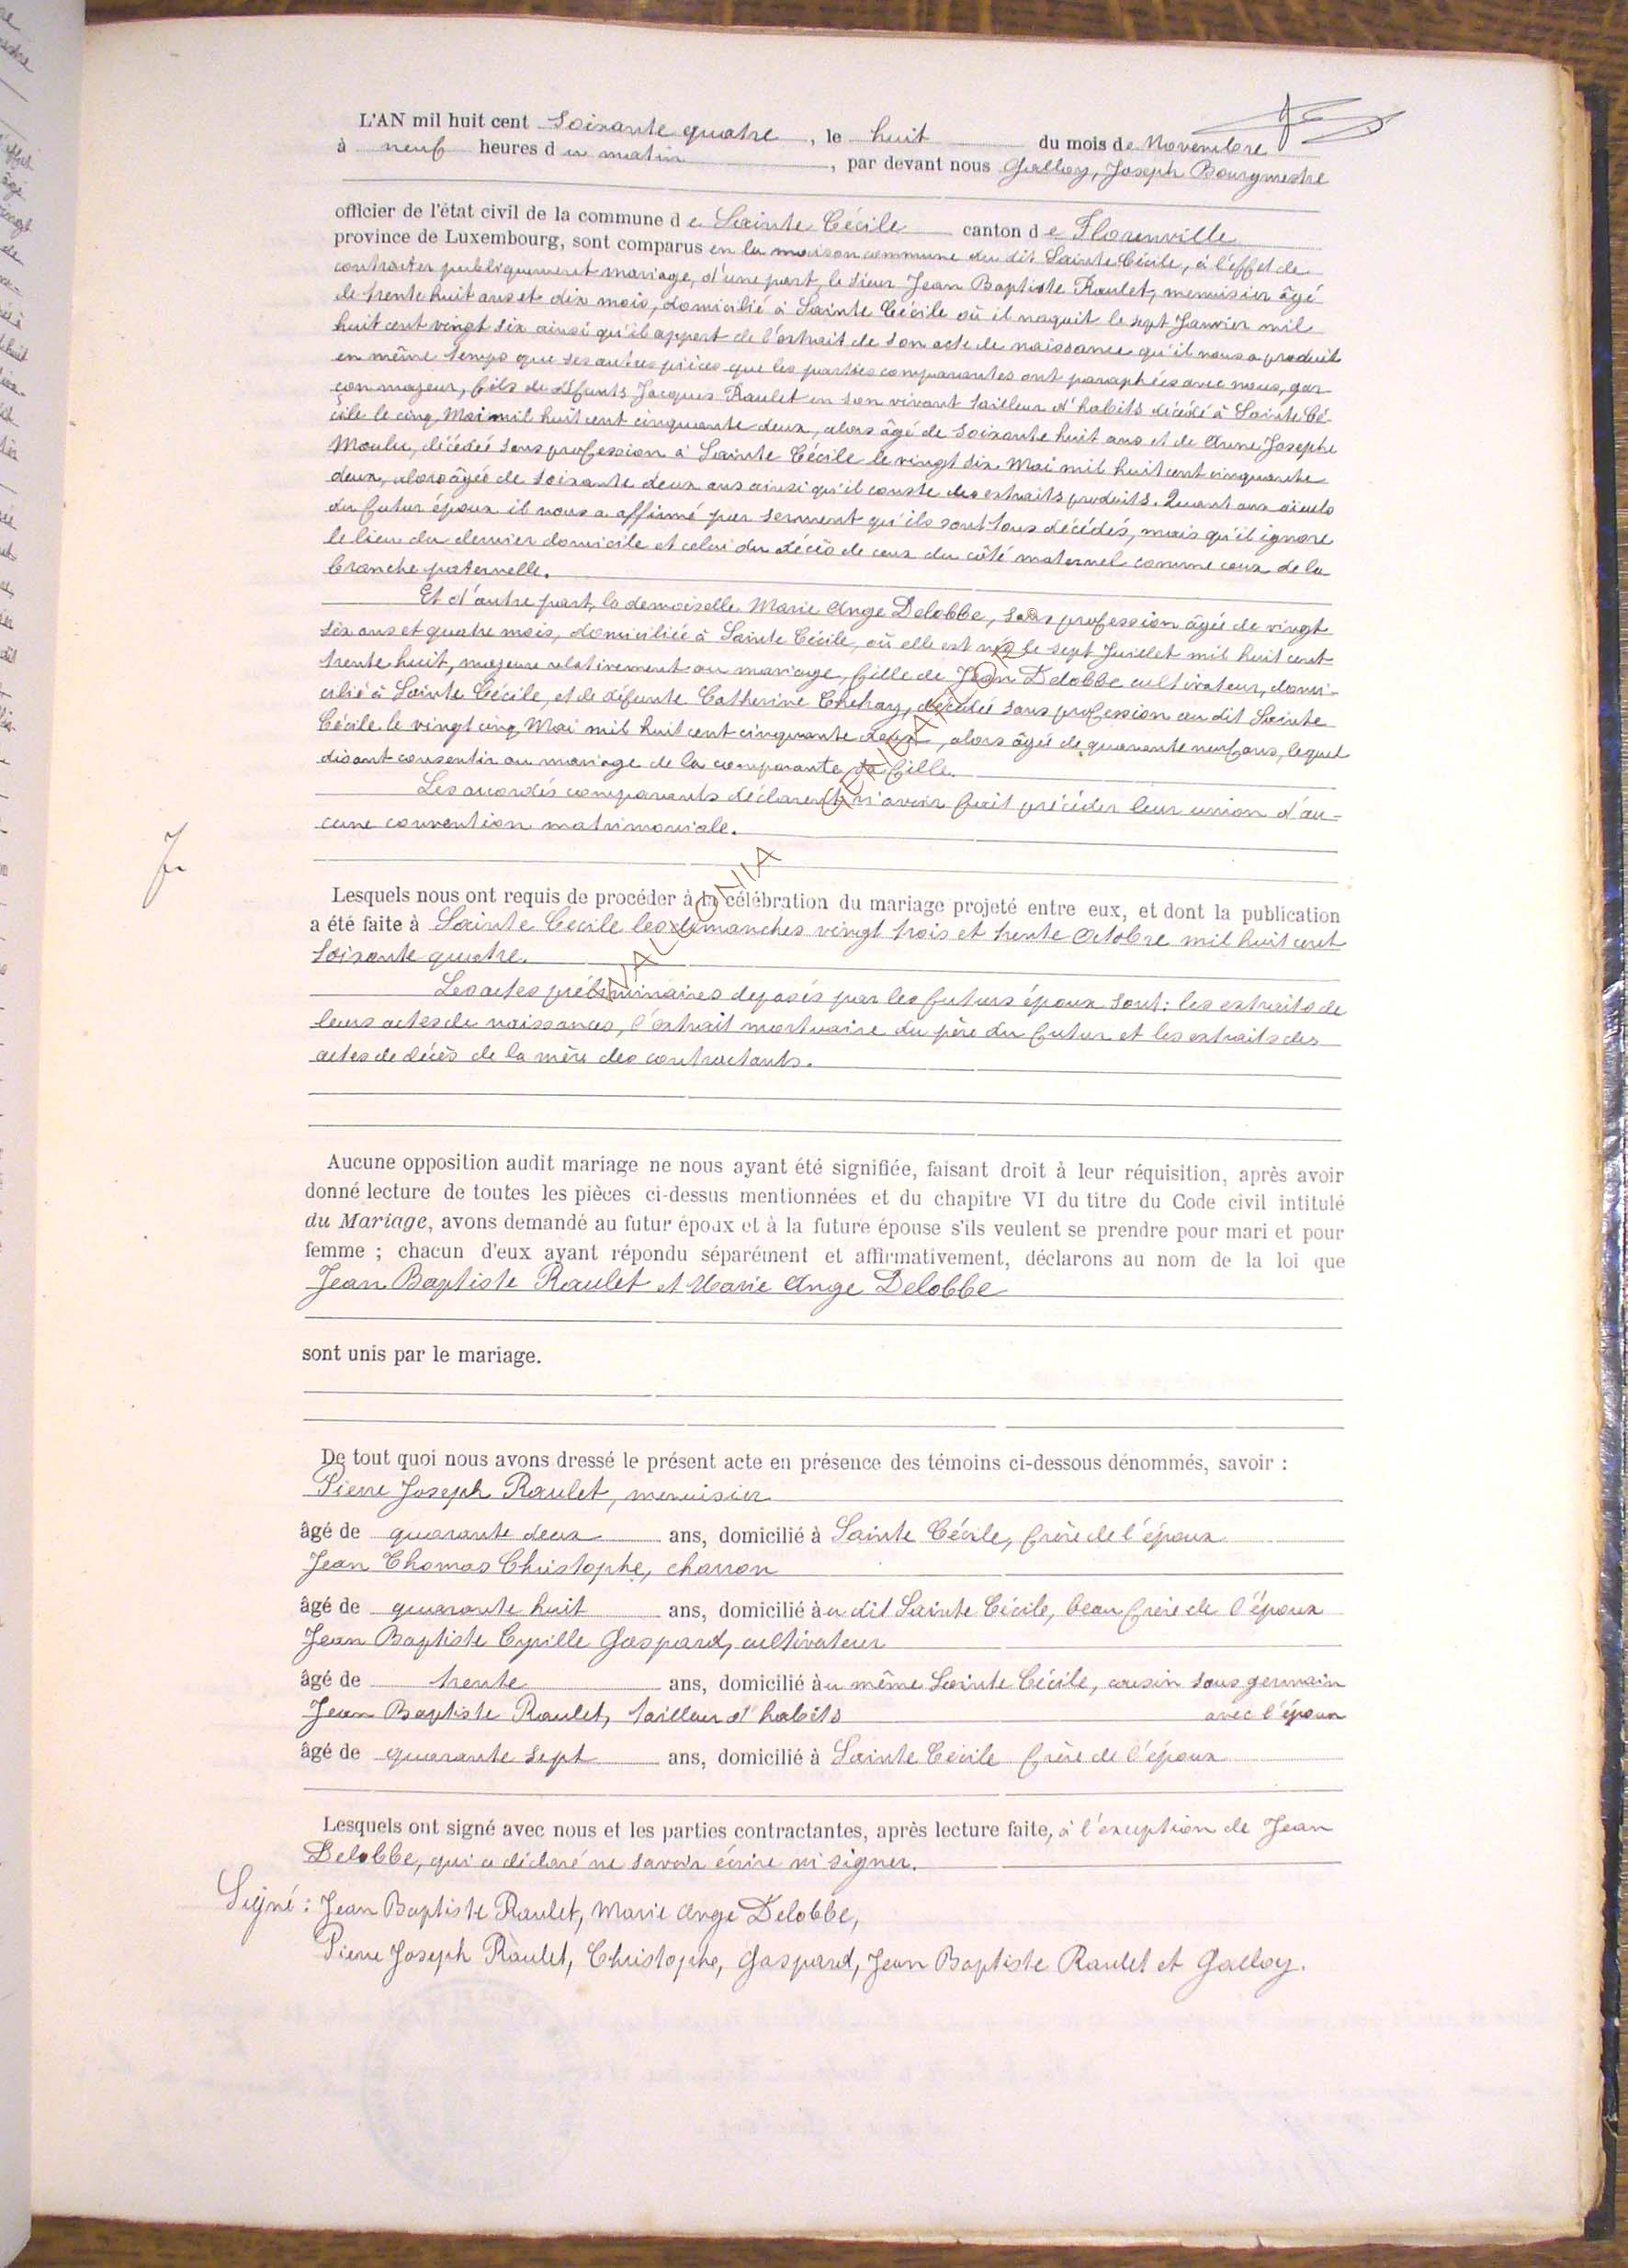 L'AN mil huit cent soixante quatre, le huit du mois de Novembre
à neuf heures du matin, par devant nous Galloy, Joseph Bourgmestre
officier de l'état civil de la commune de Sainte Cécile canton de Florenville
province de Luxembourg, sont comparus en la maison commune du dit Sainte Cécile, à l'effet de
contracter publiquement mariage, d'une part, le sieur Jean Baptiste Raulet, menuisier âgé
de trente huit ans et dix mois, domicilié à Sainte Cécile où il naquit le sept Janvier mil
huit cent vingt six ainsi qu'il appert de l'extrait de son acte de naissance qu'il nous a produit
en même temps que ses autres pièces que les parties comparantes ont paraphées avec nous, gar-
çon majeur, fils de défunts Jacques Raulet en son vivant tailleur d'habits décédé à Sainte Cé-
cile le cinq Mai mil huit cent cinquante deux, alors âgé de soixante huit ans et de Anne Josephe
Moulu, décédée sans profession à Sainte Cécile le vingt six Mai mil huit cent cinquante
deux, alors âgée de soixante deux ans ainsi qu'il conste des extraits produits. Quant aux aïeuls
du futur époux il nous a affirmé par serment qu'ils sont tous décédés, mais qu'il ignore
le lieu du dernier domicile et celui du décès de ceux du côté maternel comme ceux de la
branche paternelle.
Et d'autre part, la demoiselle Marie Ange Delobbe, sans profession âgée de vingt
six ans et quatre mois, domiciliée à Sainte Cécile, où elle est née le sept Juillet mil huit cent
trente huit, majeure relativement au mariage, fille de Jean Delobbe cultivateur, domi-
cilié à Sainte Cécile, et de défunte Catherine décédée sans profession au dit Sainte
Cécile le vingt cinq Mai mil huit cent cinquante deux, alors âgée de quarante neuf ans, lequel
disant consentir au mariage de la comparante sa fille.
Les accordés comparants déclarent n'avoir fait précéder leur union d'au-
cune convention matrimoniale.
Lesquels nous ont requis de procéder à la célébration du mariage projeté entre eux, et dont la publication
a été faite à Sainte Cecile les dimanches vingt trois et trente Octobre mil huit cent
soixante quatre.
Les actes préliminaires deposés par les futurs époux sont: les extraits de
leurs actes de naissances, l'extrait mortuaire du père du futur et les extraits des
actes de décès de la mère des contractants.
Aucune opposition audit mariage ne nous ayant été signifiée, faisant droit à leur réquisition, après avoir
donné lecture de toutes les pièces ci-dessus mentionnées et du chapitre VI du titre du Code civil intitulé
du Mariage, avons demandé au futur époux et à la future épouse s'ils veulent se prendre pour mari et pour
femme ; chacun d'eux ayant répondu séparément et affirmativement, déclarons au nom de la loi que
Jean Baptiste Raulet et Marie Ange Delobbe
sont unis par le mariage.
De tout quoi nous avons dressé le présent acte en présence des témoins ci-dessous dénommés, savoir :
Pierre Joseph Raulet, menuisier
âgé de quarante deux ans, domicilié à Sainte Cécile, frère de l'époux
Jean Thomas Christophe, charron
âgé de quarante huit ans, domicilié au dit Sainte Cécile, beau frère de l'époux
Jean Baptiste Cyrille Gaspard, cultivateur
âgé de trente ans, domicilié au même Sainte Cécile, cousin sous germain
Jean Baptiste Raulet, tailleur d'habits avec l'époux
âgé de quarante sept ans, domicilié à Sainte Cécile frère de l'époux
Lesquels ont signé avec nous et les parties contractantes, après lecture faite, à l'exception de Jean
Delobbe, qui a déclaré ne savoir écrire ni signer.
Signé : Jean Baptiste Raulet, Marie Ange Delobbe,
Pierre Joseph Raulet, Christophe, Gaspard, Jean Baptiste Raulet et Galloy.